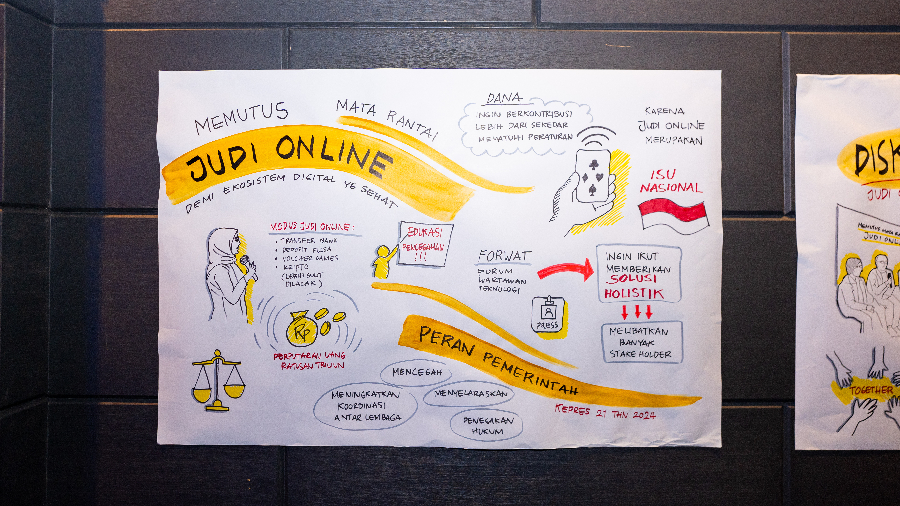 MEMUTUS MATA RANTAI
JUDI ONLINE
DEMI EKOSISTEM DIGITAL YG SEHAT
DANA
INGIN BERKONTRIBUSI
LEBIH DARI SEKEDAR
MEMATUHI PERATURAN
KARENA
JUDI ONLINE
MERUPAKAN
ISU
NASIONAL
MODUS JUDI ONLINE:
• TRANSFER BANK
• DEPOSIT PULSA
• VOUCHER GAMES
• KRIPTO
(LEBIH SULIT
DILACAK)
EDUKASI
PENCEGAHAN
!!!
Rp
PERPUTARAN UANG
RATUSAN TRILIUN
FORWAT
FORUM
WARTAWAN
TEKNOLOGI
PRESS
INGIN IKUT
MEMBERIKAN
SOLUSI
HOLISTIK
MELIBATKAN
BANYAK
STAKEHOLDER
PERAN PEMERINTAH
KEPRES 21 THN 2024
MENCEGAH
MENINGKATKAN
KOORDINASI
ANTAR LEMBAGA
MENYELARASKAN
PENEGAKAN
HUKUM
DISK
JUDI
TOGETHER